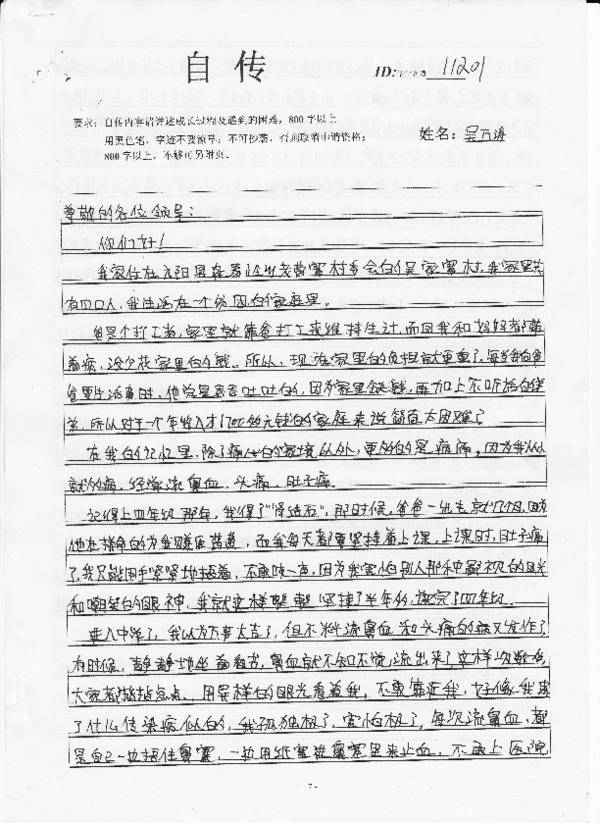 自传
ID: 11201
要求：自传内容请详述成长过程及遇到的困难，800字以上
用黑色笔，字迹不要潦草；不可抄袭，否则取消申请资格；
800字以上，不够可另附页.
姓名：吴
尊敬的各位领导：
你们好！
我家住在 阳 县 镇 营寨村委会白 家寨村，我家里共
有四口人，我生活在一个贫困的家庭里。
爸是个打工者，家里就靠爸打工来维持生计，而因我和妈妈都
着病，没少花家里的钱。所以，现在家里的负担就更重了，每当我向爸
爸要生活费时，他总是吞吞吐吐的，因为家里缺钱，再加上
，所以对于一个年收入才1700多元钱的家庭来说简直太困难了
在我的记忆里，除了痛心的家境以外，更多的是病痛，因为我从小
就多病，经常流鼻血、头痛、肚子痛
记得上四年级那年，我得了"肾结石"，那时候，爸爸一出去就几个月，因为
他在拼命的为我赚医药费，而我每天都要坚持着上课，上课时，肚子痛
了，我只能用手紧紧地捂着，不敢吱一声，因为我害怕别人那种鄙视的目光
和嘲笑的眼神，我就这样整整坚持了半年多，读完了四年级.
进入中学了，我以为万事大吉了，但不料流鼻血和头痛的病又发作了
有时候，静静地坐着看书，鼻血就不知不觉流出来了，这样次数多
大家都指指点点，用异样的眼光看着我，不敢靠近我，好像我得
了什么传染病似的，我孤独极了，害怕极了，每次流鼻血，都
是自己一边捂住鼻塞，一边用纸塞进鼻塞里来止血，不敢上医院